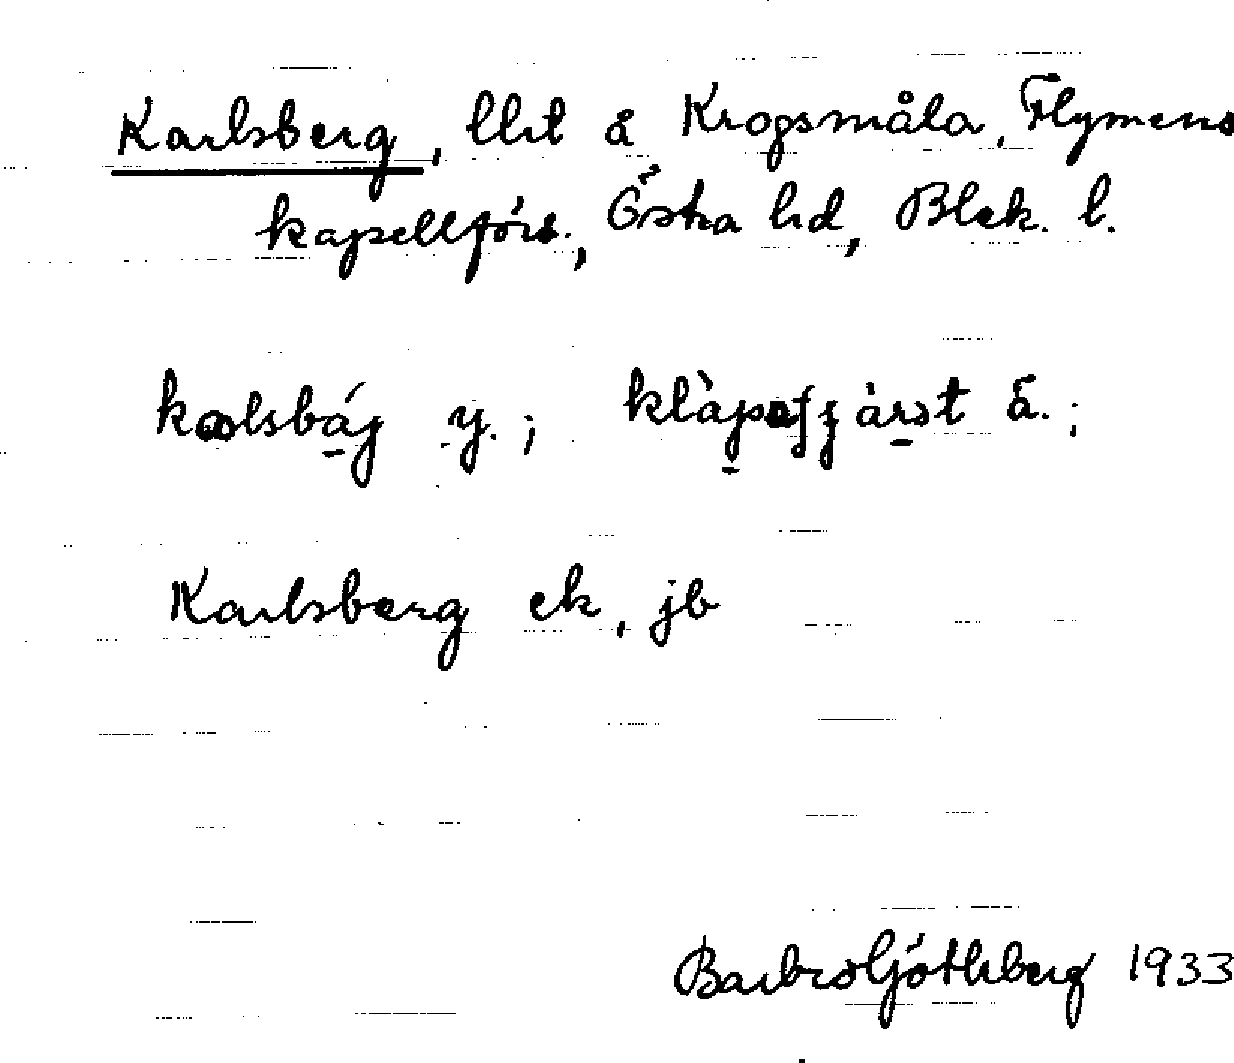 Karlsberg, lht å Krogsmåla, Flymens
kapellförs., Östra hd, Blek. l.
y.; ä.;
Karlsberg ek, jb
Barbro Götheberg 1933